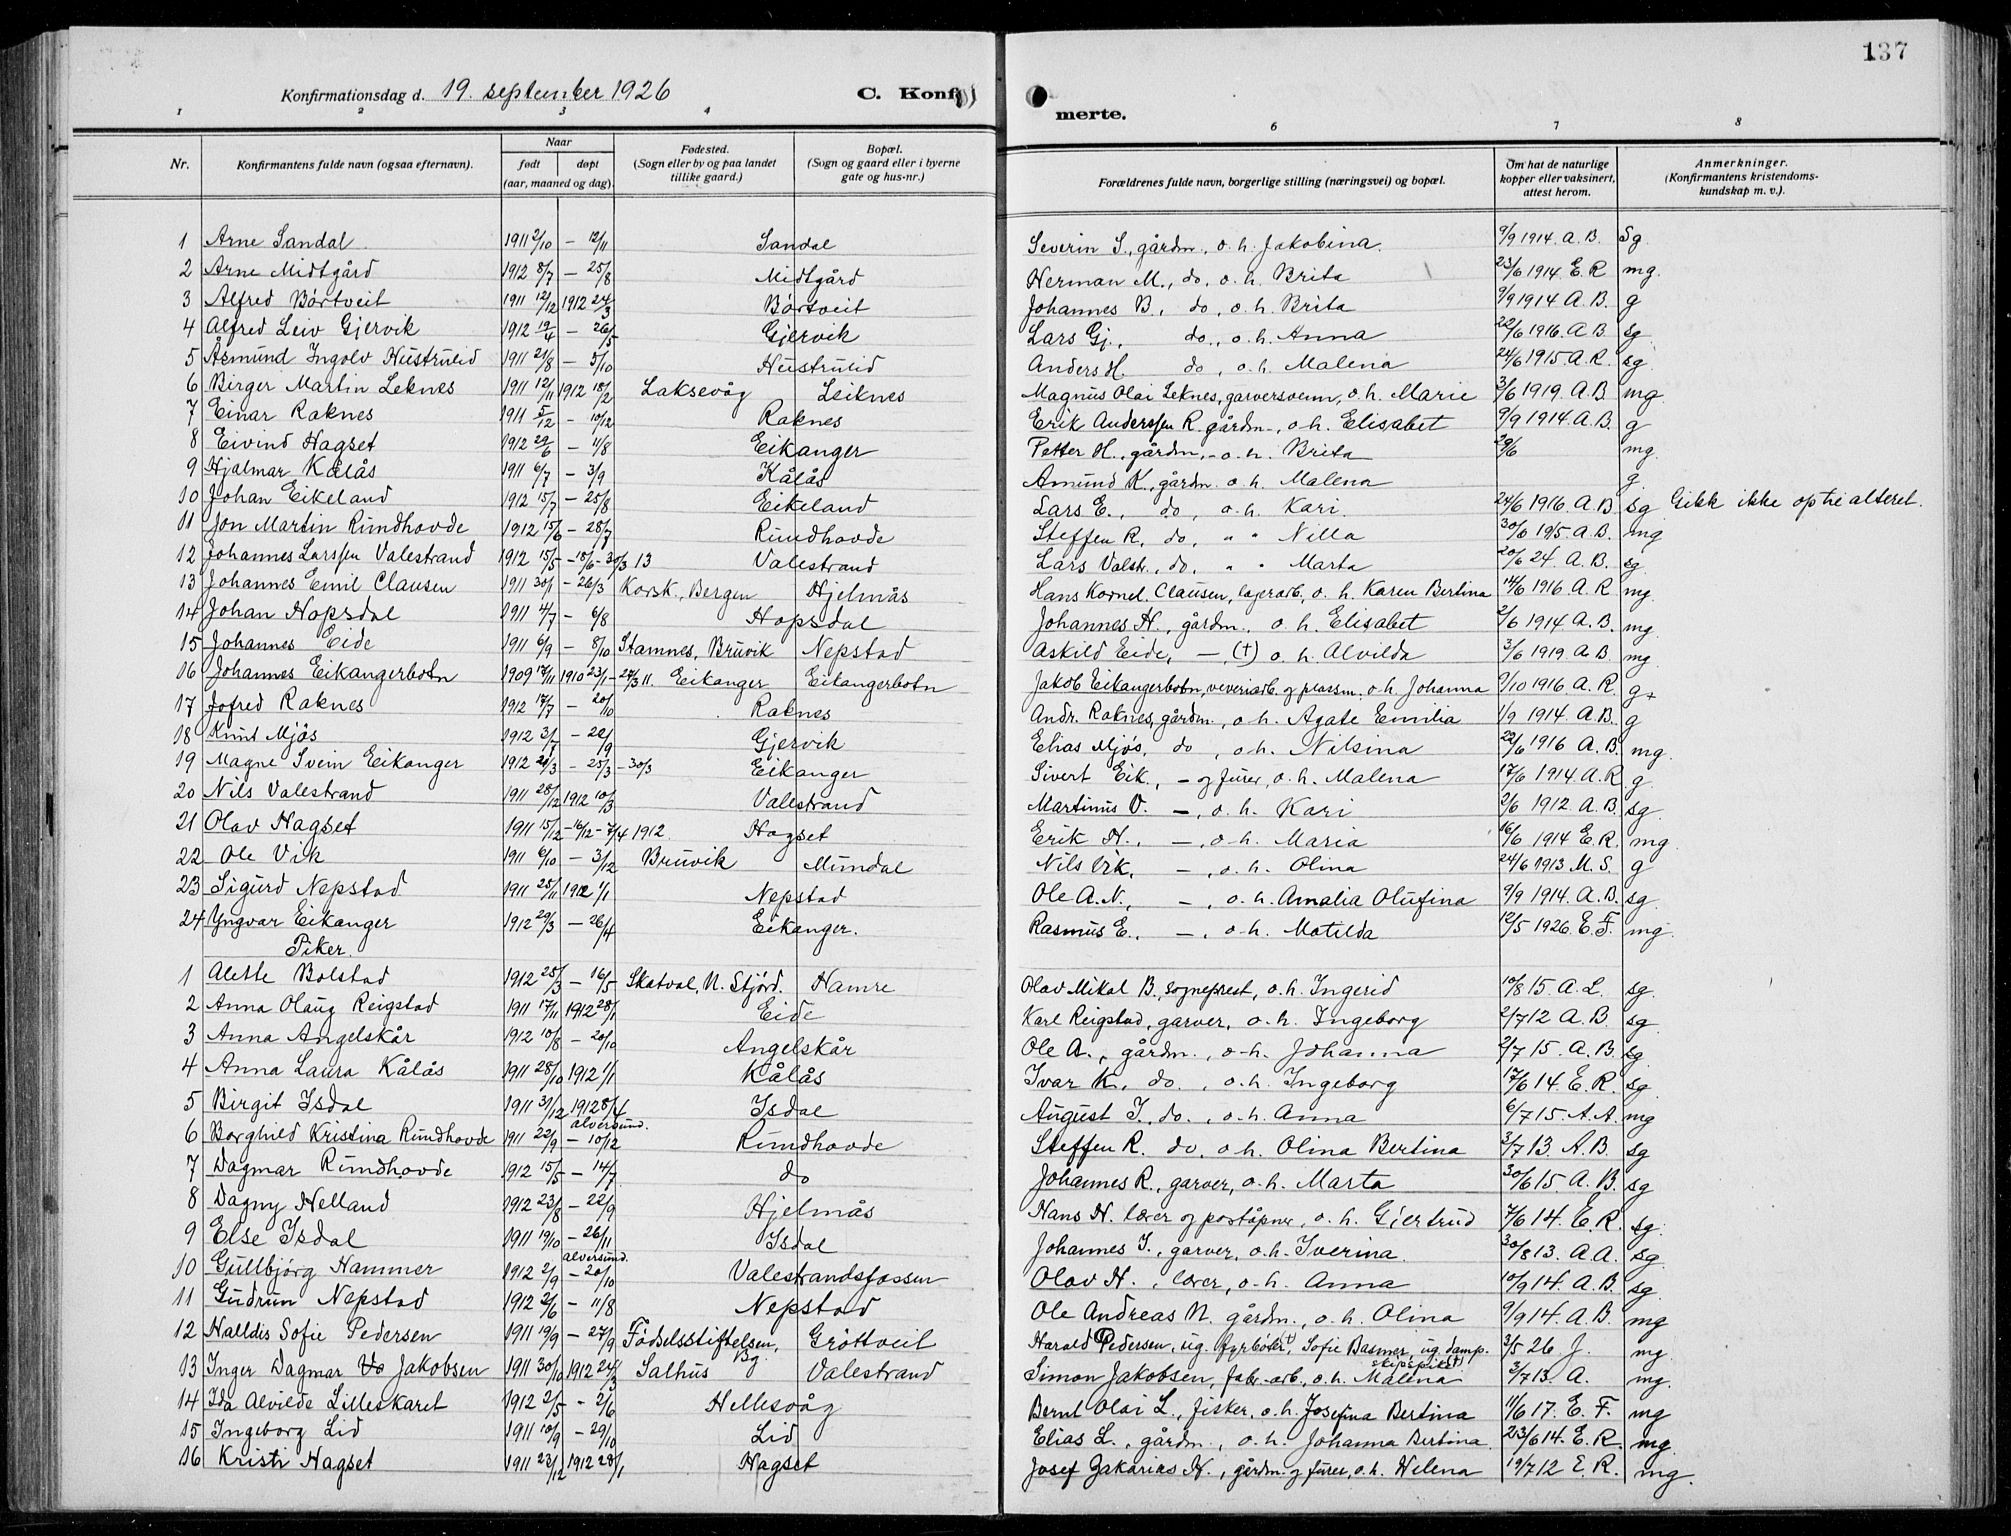 137
Konfirmationsdag d. 19. september 1926 C. Konfirmerte.
1 2 3 4 6 7 8
Nr. Konfirmantens fulde navn (ogsaa efternavn). Naar født døpt (aar, maaned og dag). Fødested. (Sogn eller by og paa landet tillike gaard.) Bopæl. (Sogn og gaard eller i byerne gate og hus-nr.) Forældrenes fulde navn, borgerlige stilling (næringsvei) og bopæl. Om hat de naturlige kopper eller vaksinert, attest herom. Anmerkninger. (Konfirmantens kristendoms-kundskap m. v.).
1 Arne Sandal 1911 2/10 – 12/11 Sandal Severin S., gårdm., o. h. Jakobina. 9/9 1914. A. B. Sg.
2 Arne Midtgård 1912 8/7 – 25/8 Midtgård Herman M., do, o. h. Brita 23/6 1914 E. R mg.
3 Alfred Börtveit 1911 12/12 1912 24/3 Börtveit Johannes B., do, o. h. Brita 9/9 1914 A. B. g
4 Alfred Leiv Gjervik 1912 19/4 – 26/5 Gjervik Lars Gj., do., o. h. Anna 22/6 1916. A. B. sg
5 Åsmund Ingolv Hustrulid 1911 21/8 – 5/10 Hustrulid Anders H. do, o. h. Malena 24/6 1915. A. R. sg.
6 Birger Martin Leknes 1911 12/11 1912 18/2 Laksevåg Leiknes Magnus Olai Leknes, garversvenn, o. h. Marie 3/6 1919. A. B. mg.
7 Einar Raknes 1911 5/12 – 10/12 Raknes Erik Anderssen R. gårdm., o. h. Elisabet 9/9 1914. A. B. g
8 Eivind Hagset 1912 22/6 – 11/8 Eikanger Petter H., gårdm, – o. h. Brita 29/6 mg.
9 Hjalmar Kålås 1911 6/7 – 3/9 Kålås Amund K., gårdm. o. h. Malena g.
10 Johan Eikeland 1912 15/7 – 25/8 Eikeland Lars E., do, o. h. Kari. 24/6 1916. A. B sg Gikk ikke op til alteret.
11 Jon Martin Rundhovde 1912 15/6 – 28/7 Rundhovde Steffen R. do, " " Nilla 30/6 1915. A. B. mg
12 Johannes Larssen Valestrand 1912 15/5 – 15/6 – 30/3 13 Valestrand Lars Valstr., do, " " Marta 20/6 24. A. B. sg.
13 Johannes Emil Clausen 1911 30/1 – 26/3 Korsk., Bergen Hjelmås Hans Kornel. Clausen, lagerarb., o. h. Karen Bertina 14/6 1916. A. R mg.
14 Johan Hopsdal 1911 4/7 – 6/8 Hopsdal Johannes H., gårdm., o. h. Elisabet 2/6 1914 A. B. mg
15 Johannes Eide 1911 6/9 – 8/10 Stamnes, Bruvik Nepstad Askild Eide, –, (†) o. h. Alvilda 3/6 1919. A. B. mg
16 Johannes Eikangerbotn 1909 17/11 1910 23/1 – 27/3 11. Eikanger Eikangerbotn Jakob Eikangerbotn, veveriarb. og plassm. o. h. Johanna 9/10 1916. A. R g+
17 Jofred Raknes 1912 17/7 – 20/10 Raknes Andr. Raknes, gårdm., o. h. Agate Emilia 1/9 1914. A. B. g
18 Knut Mjös 1912 3/7 – 22/9 Gjervik Elias Mjös, do, o. h. Nilsina 22/6 1916 A. B. mg.
19 Magne Svein Eikanger 1912 20/3 – 25/3 – 30/3 Eikanger Sivert Eik., – og furer, o. h. Malena 17/6 1914. A. R g.
20 Nils Valestrand 1911 28/12 1912 10/3 Valestrand Martinus V. –, o. h. Kari 2/6 1912. A. B. sg.
21 Olav Hagset 1911 15/12 – 16/12 – 7/4 1912. Hagset Erik H., –, o. h. Maria 16/6 1914 E. R. mg
22 Ole Vik 1911 6/10 – 3/12 Bruvik Mundal Nils Vik, –, o. h. Olina 24/6 1913 M. S. g
23 Sigurd Nepstad 1911 25/11 1912 1/1 Nepstad Ole A. N., –, o. h. Amalia Olufina 9/9 1914. A. B. sg.
24 Yngvar Eikanger 1912 29/3 – 26/4 Eikanger. Rasmus E., –, o. h. Matilda 12/5 1926. E. F. mg.
Piker.
1 Alette Bolstad 1912 25/3 – 16/5 Skatval, N. Stjörd. Hamre Olav Mikal B., sogneprest, o. h. Ingerid 10/8 15. A. L. sg.
2 Anna Olaug Reigstad 1911 17/11 1912 28/1 Eide Karl Reigstad, garver, o. h. Ingeborg 2/7 12 A. B. sg
3 Anna Angelskår 1912 10/8 – 20/10 Angelskår Ole A., gårdm., o. h. Johanna 2/7 15. A. B. sg
4 Anna Laura Kålås 1911 28/10 1912 1/1 Kålås Ivar K. do., o. h. Ingeborg 17/6 14. E. R. sg.
5 Birgit Isdal 1911 31/12 1912 8/4 Isdal August I., do., o. h. Anna 6/7 15. A. A. mg
alversund.
6 Borghild Kristina Rundhovde 1911 22/9 – 10/12 Rundhovde Steffen R. do, o. h. Olina Bertina 3/7 13. A. B. sg
7 Dagmar Rundhovde 1912 15/5 – 14/7 do Johannes R., garver, o. h. Marta 30/6 15. A. B. sg
8 Dagny Helland 1912 23/8 – 22/9 Hjelmås Hans H. lærer og poståpner, o. h. Gjertrud 7/6 14. E. R. sg.
9 Else Isdal 1911 19/10 – 26/11 Isdal Johannes I., garver, o. h. Iverina. 30/8 13. A. A. sg.
alversund.
10 Gullbjörg Hammer 1912 2/9 – 20/10 Valestrandsfossen Olav H., lærer, o. h. Anna 10/9 14. A. B. sg.
11 Gudrun Nepstad 1912 2/6 – 11/8 Nepstad Ole Andreas N. gårdm., o. h. Olina 9/9 14. A. B. mg
12 Halldis Sofie Pedersen 1911 19/9 – 27/9 Fødselsstiftelsen, Bg. Gröttveit Harald Pedersen, ug. fyrböter (†), Sofie Basmer, ug. damp-skipspike (†) 3/5 26. J. mg.
13 Inger Dagmar Jakobsen 1911 30/10 1912 24/3 Salhus Valestrand Simon Jakobsen, fabr-arb., o. h. Malena 3/7 13. A. mg.
14 Ida Alvilde Lilleskaret 1912 2/5 – 2/6 Hellesvåg Bernt Olai L., fisker, o. h. Josefina Bertina 11/6 17. E. F. mg
15 Ingeborg Lid 1911 10/9 – 29/10 Lid Elias L., gårdm., o. h. Johanna Bertina. 23/6 14. E. R. mg.
16 Kristi Hagset 1911 23/12 1912 28/1 Hagset Josef Zakarias H., gårdm. og furer, o. h. Helena 19/7 12 E. R. mg.